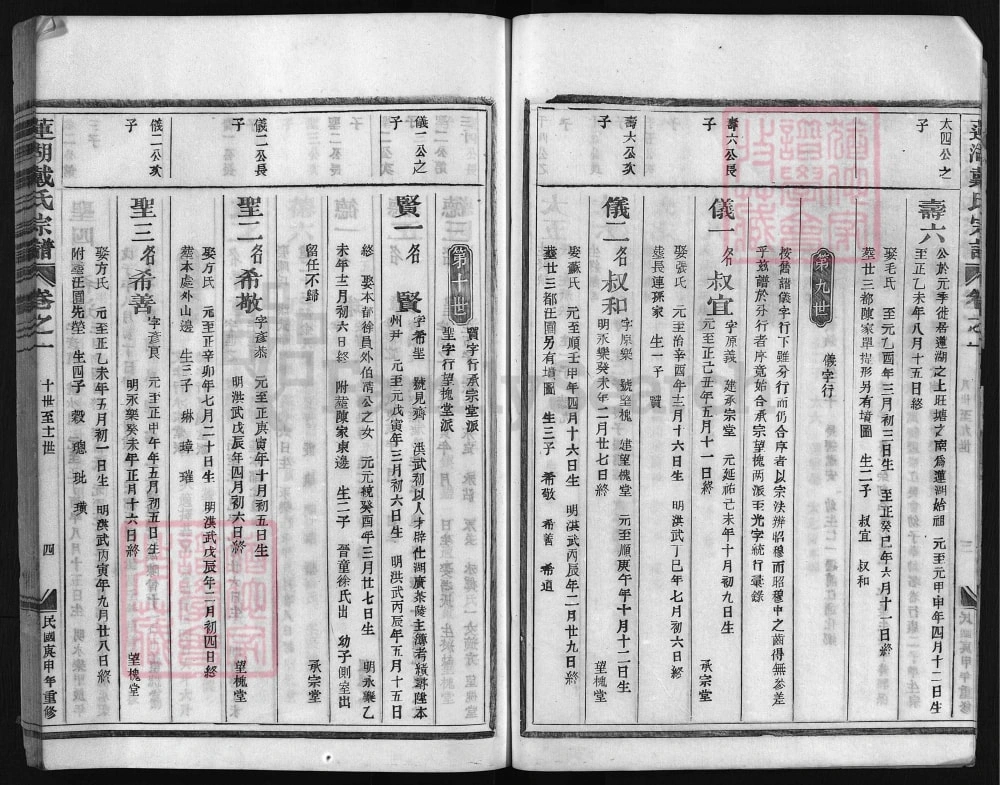 太四公之
子
壽六
公於元季徙居蓮湖之上旺塘之南為蓮湖始祖 元至元甲申年四月十二日生
至正乙未年八月十五日終
娶毛氏 元至元乙酉年三月初三日生 至正癸巳年六月十二日終
葬廿三都陳家單提形另有墳圖 生二子 叔宜 叔和
第九世
儀字行
按舊譜儀字行下雖分行而仍合序者以宗法辨昭穆而昭穆中之齒得無參差
乎茲譜於分行者序竟始合承宗望槐兩派至光字統行彙錄
壽六公長
子
儀一 名叔宜
字原義 建承宗堂 元延祐己未年十月初九日生
元至正己丑年五月十一日終
承宗堂
娶張氏 元至治辛酉年十二月十六日生 明洪武丁巳年七月初六日終
葬長連孫家 生一子 賢
壽六公次
子
儀二 名叔和
字原樂 號望槐 建望槐堂 元至順庚午年十月十二日生
明永樂癸未年二月廿七日終
望槐堂
娶蘇氏 元至順壬申年四月十六日生 明洪武丙辰年二月廿九日終
葬廿三都汪園另有墳圖 生三子 希敬 希善 希道
第十世
賢字行承宗堂派
聖字行望槐堂派
儀一公之
子
賢一 名賢
字希聖 號見齊 洪武初以人才辟仕湖廣茶陵主簿考績尋陞本
州尹 元至元戊寅年三月初六日生 明洪武丙辰年五月十五日
終 娶本都徐員外伯常公之女 元元統癸酉年三月廿七日生 明永樂乙
未年十二月初六日終 附葬陳家東邊 生二子 晉童徐氏出 幼子側室出
留任不歸
承宗堂
儀二公長
子
聖二 名希敬
字彥恭 元至正庚寅年十月初五日生
明洪武戊辰年四月初六日終
望槐堂
娶方氏 元至正辛卯年七月二十日生 明洪武戊辰年二月初四日終
葬本處外山邊 生三子 琳 璋 璀
儀二公次
子
聖三 名希善
字彥良 元至正甲午年五月初五日生
明永樂癸未年正月十六日終
望槐堂
娶方氏 元至正乙未年五月初一日生 明洪武丙寅年九月廿八日終
附葬汪園先塋 生四子
蓮湖戴氏宗譜
卷之一
十世至十一世
四
民國庚申年重修